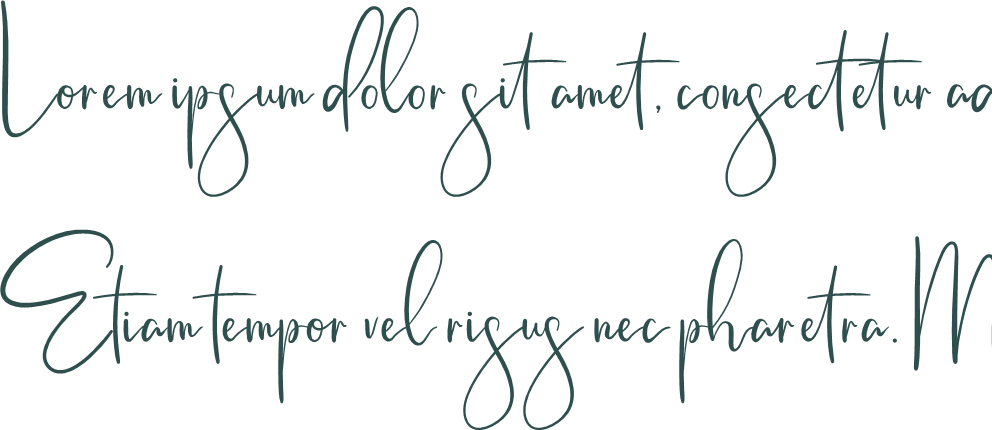 Lorem ipsum dolor sit amet, consectetur ad
Etiam tempor vel risus nec pharetra. M